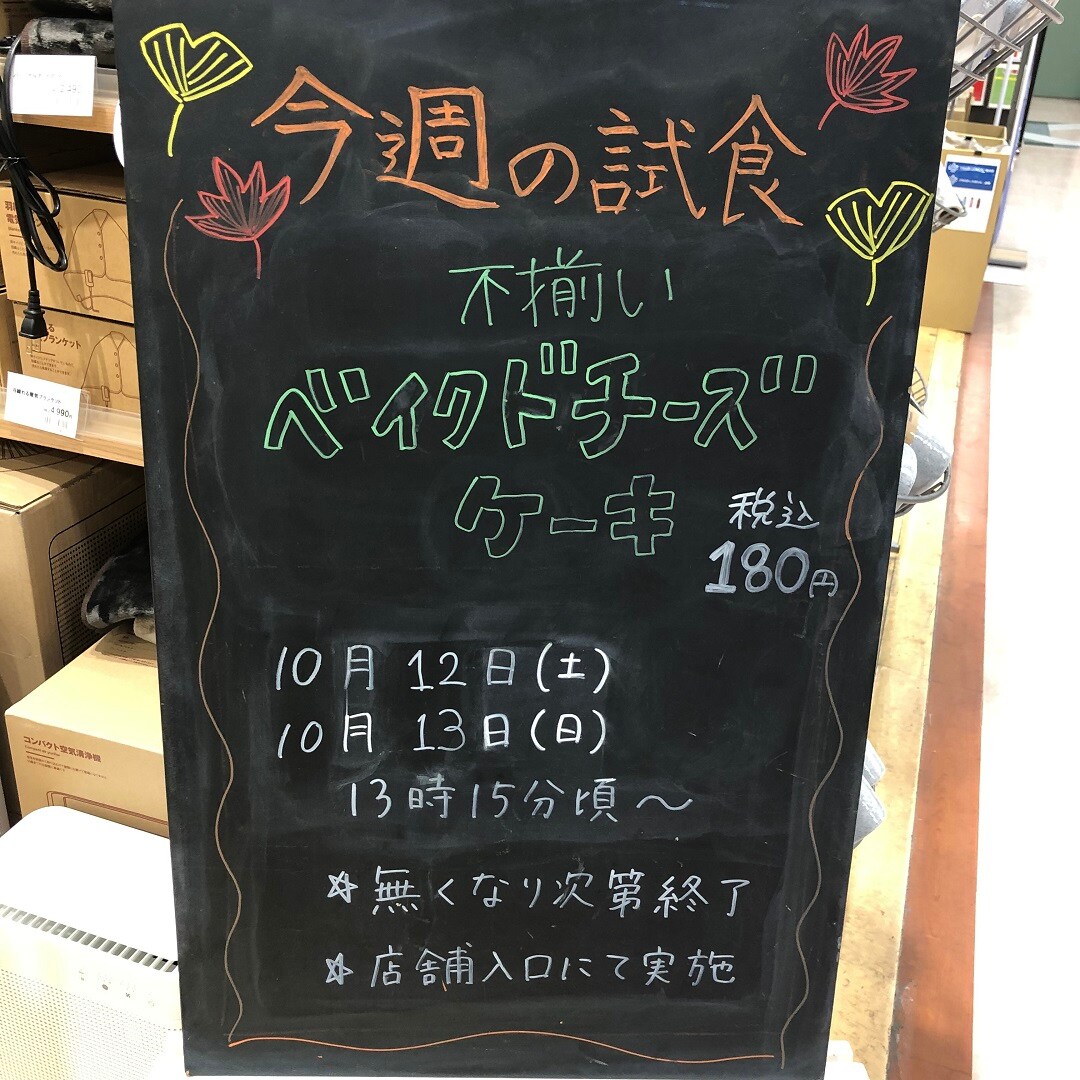 今週の試食
不揃い
ベイクドチーズ
ケーキ
税込
180円
10月12日(土)
10月13日(日)
13時15分頃〜
☆無くなり次第終了
☆店舗入口にて実施
ブランケット
4,990円
コンパクト空気清浄機